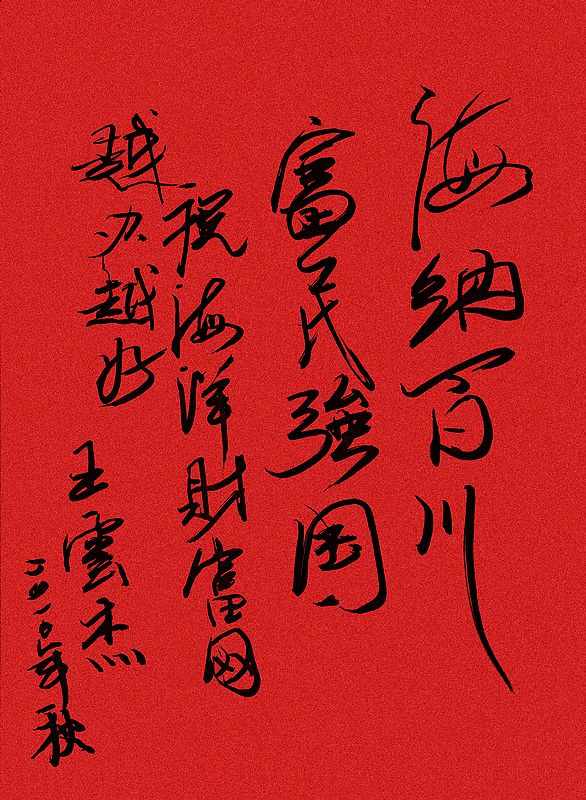 海纳百川
富民強国
祝海洋財富网
越办越好
王雲杰
二〇一〇年秋